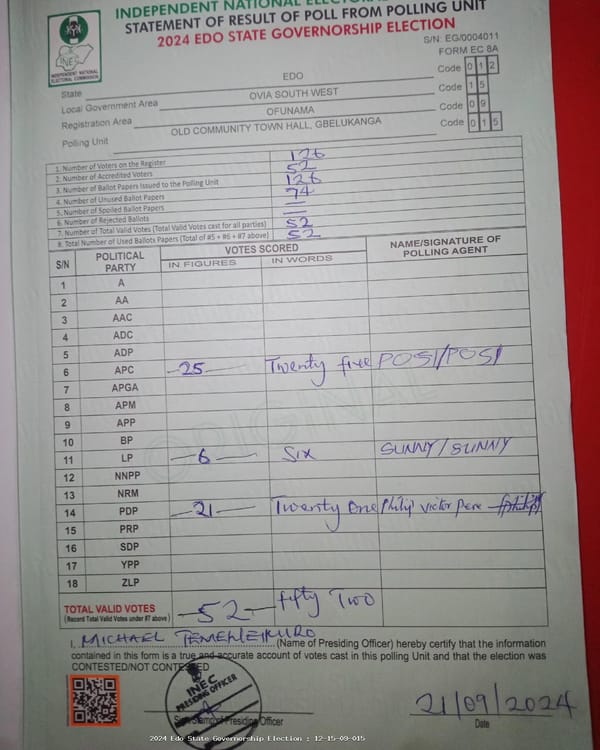 INDEPENDENT NATIONAL ELECTORAL
STATEMENT OF RESULT OF POLL FROM POLLING UNIT
2024 EDO STATE GOVERNORSHIP ELECTION
INEC
INDEPENDENT NATIONAL ELECTORAL COMMISSION
S/N: EG/0004011
FORM EC 8A
State EDO Code 0 1 2
Local Government Area OVIA SOUTH WEST Code 1 5
Registration Area OFUNAMA Code 0 9
Polling Unit OLD COMMUNITY TOWN HALL, GBELUKANGA Code 0 1 5
1. Number of Voters on the Register 126
2. Number of Accredited Voters 52
3. Number of Ballot Papers Issued to the Polling Unit 126
4. Number of Unused Ballot Papers 74
5. Number of Spoiled Ballot Papers —
6. Number of Rejected Ballots —
7. Number of Total Valid Votes (Total Valid Votes cast for all parties) 52
8. Total Number of Used Ballots Papers (Total of #5 + #6 + #7 above) 52
S/N POLITICAL PARTY VOTES SCORED NAME/SIGNATURE OF POLLING AGENT
IN FIGURES IN WORDS
1 A
2 AA
3 AAC
4 ADC
5 ADP
6 APC —25— Twenty five POSI/POSI
7 APGA
8 APM
9 APP
10 BP
11 LP —6— Six SUNNY/SUNNY
12 NNPP
13 NRM
14 PDP —21— Twenty One Philip victor pere
15 PRP
16 SDP
17 YPP
18 ZLP
ORIGINAL
TOTAL VALID VOTES —52— fifty Two
(Record Total Valid Votes under #7 above)
I, MICHAEL (Name of Presiding Officer) hereby certify that the information
contained in this form is a true and accurate account of votes cast in this polling Unit and that the election was
CONTESTED/NOT CONTESTED
INEC
PRESIDING OFFICER
Sign/Stamp of Presiding Officer
21/09/2024
Date
2024 Edo State Governorship Election : 12-15-09-015